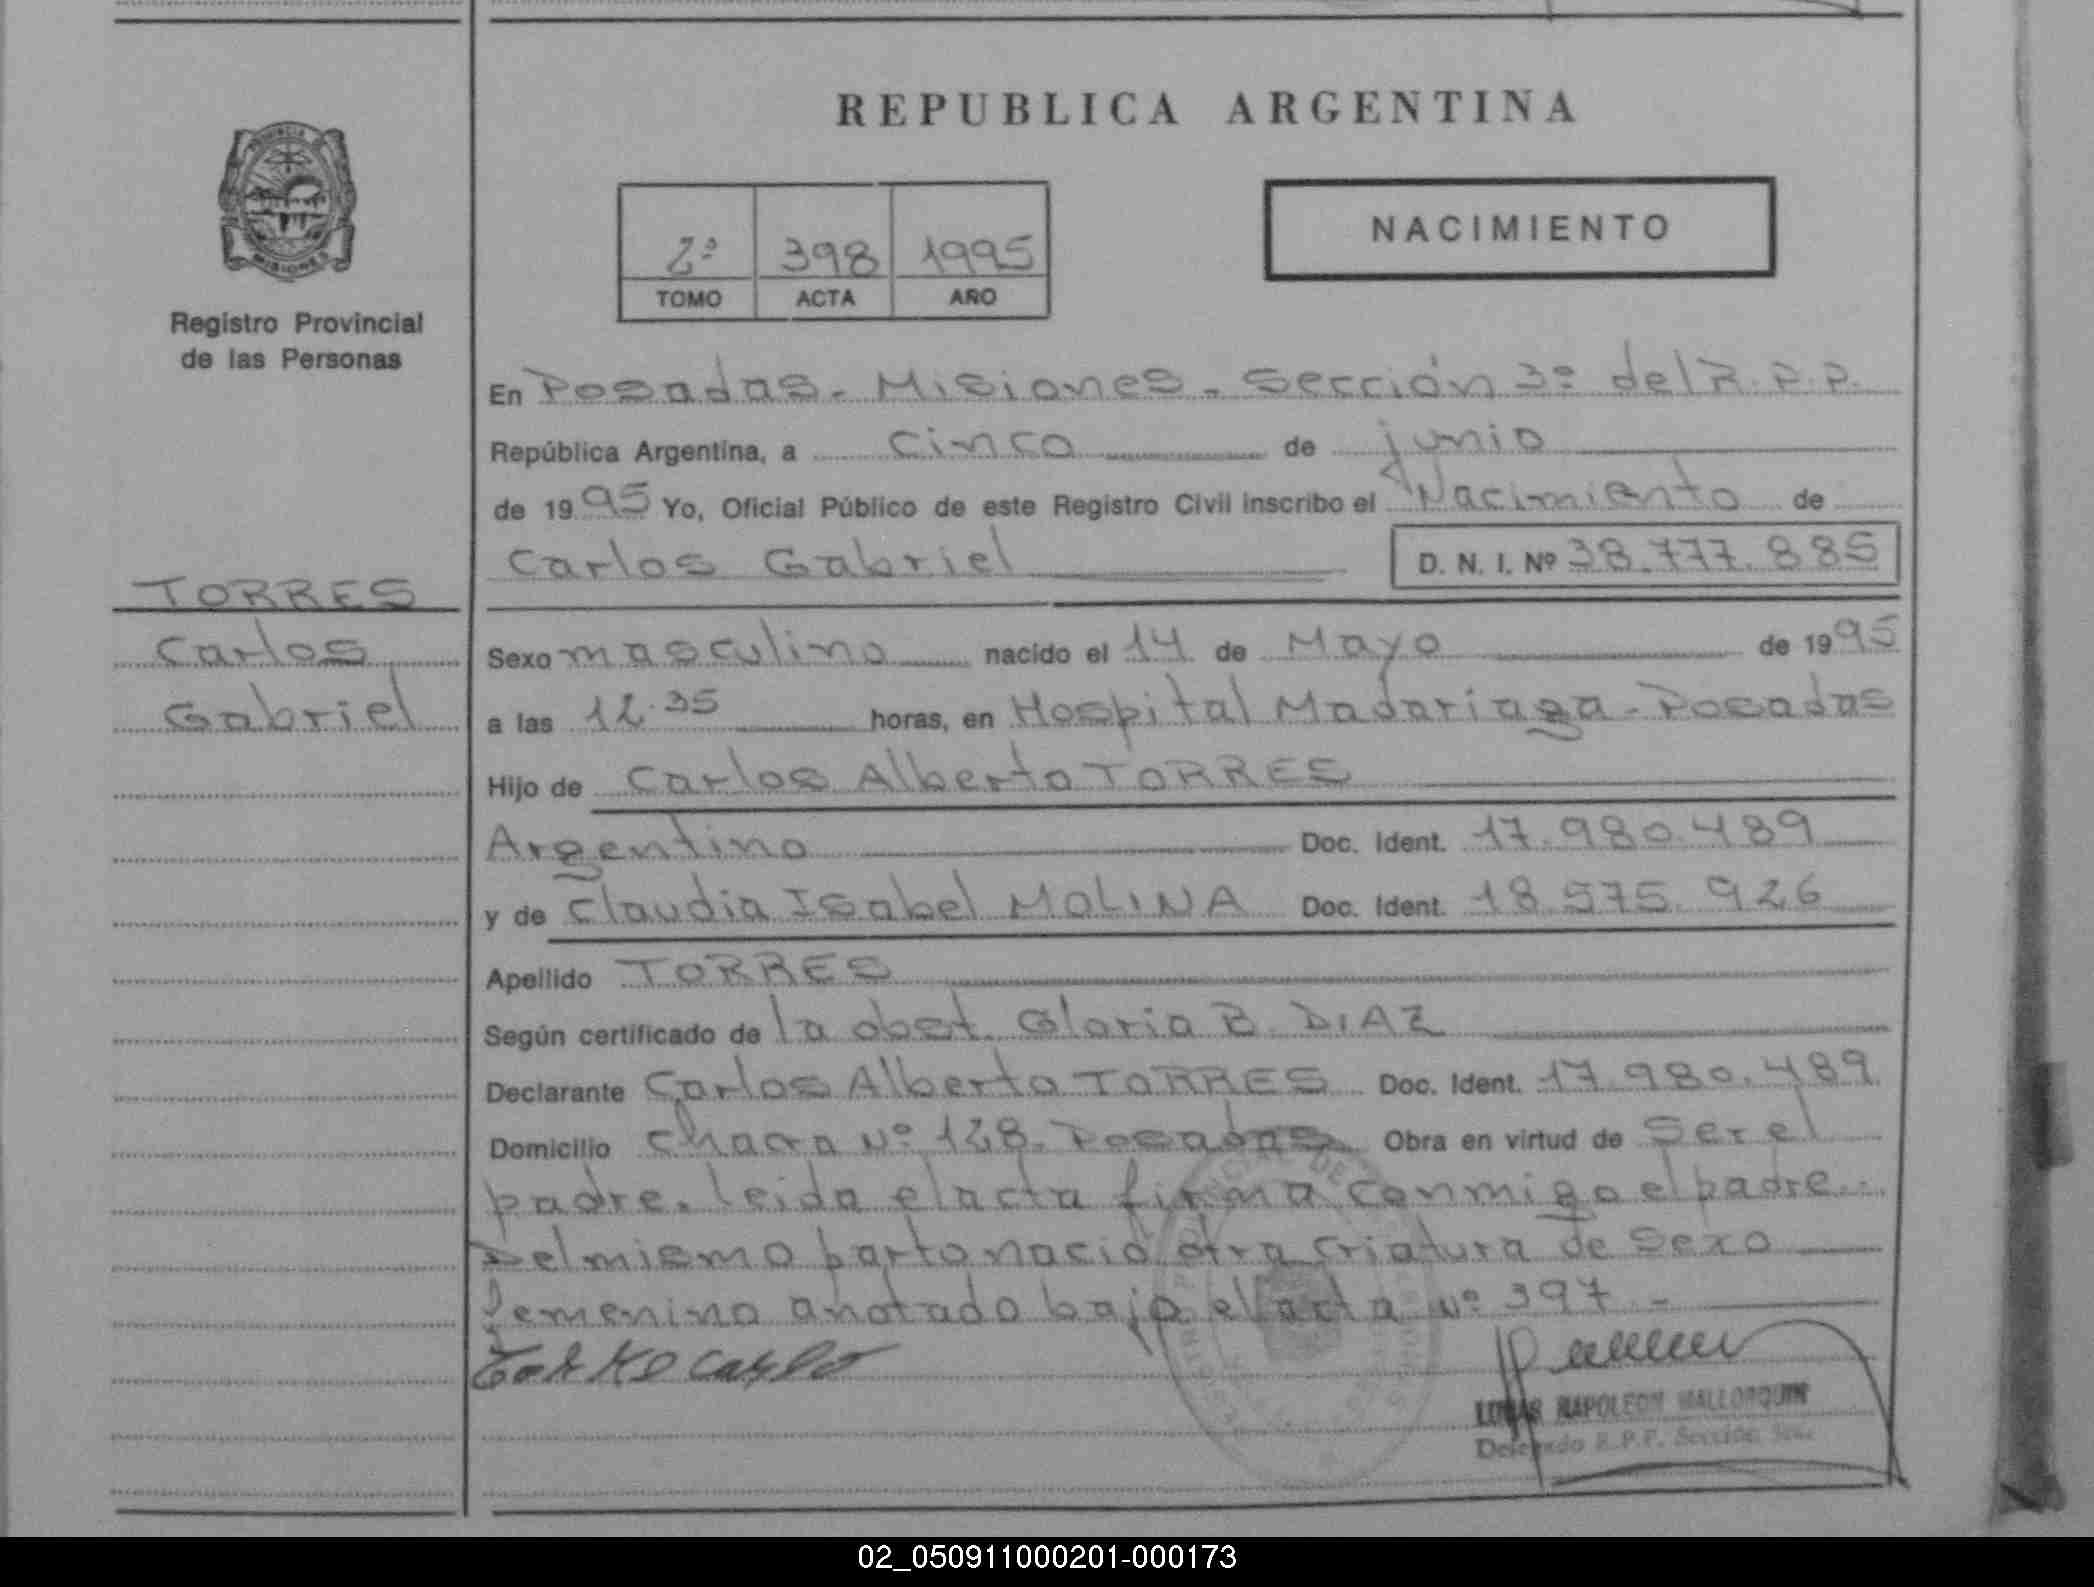 REPUBLICA ARGENTINA
PROVINCIA
MISIONES
Registro Provincial
de las Personas
2º 398 1995
TOMO ACTA AÑO
NACIMIENTO
En Posadas - Misiones - Sección 3º del R.P.P.
República Argentina, a cinco de junio
de 1995 Yo, Oficial Público de este Registro Civil inscribo el Nacimiento de
Carlos Gabriel D. N. I. Nº 38.777.885
TORRES
Carlos
Gabriel
Sexo masculino nacido el 14 de Mayo de 1995
a las 12.35 horas, en Hospital Madariaga - Posadas
Hijo de Carlos Alberto TORRES
Argentino Doc. Ident. 17.980.489
y de Claudia Isabel MOLINA Doc. Ident. 18.575.926
Apellido TORRES
Según certificado de la obst. Gloria B. DIAZ
Declarante Carlos Alberto TORRES Doc. Ident. 17.980.489
Domicilio chacra Nº 128. Posadas Obra en virtud de Ser el
padre. leida el acta firma conmigo el padre.-
Del mismo parto nació otra criatura de Sexo
femenino anotado bajo el acta Nº 397 -
LUCAS NAPOLEON MALLORQUIN
Delegado R.P.P. Sección
02_050911000201-000173